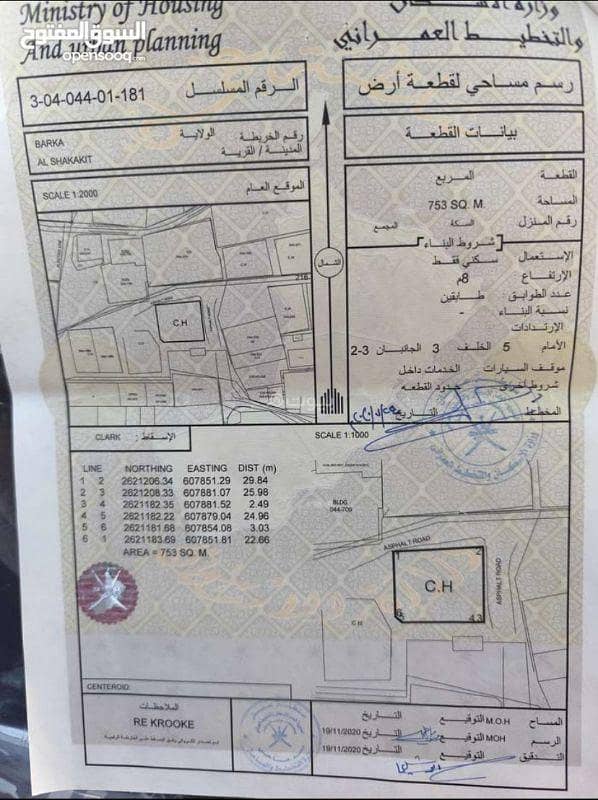 Ministry of Housing
And urban planning
والتخطيط العمراني
السوق المفتوح
opensooq.com
رسم مساحي لقطعة أرض
الرقم المسلسل 3-04-044-01-181
بيانات القطعة
رقم الخريطة الولاية BARKA
المدينة / القرية AL SHAKAKIT
الموقع العام SCALE 1:2000
القطعة المربع
المساحة 753 SQ. M.
رقم المنزل السكة المجمع
شروط البناء
الإستعمال سكني فقط
الإرتفاع 8م
عدد الطوابق طابقين
نسبة البناء -
الإرتدادات
الأمام 5 الخلف 3 الجانبان 2-3
موقف السيارات الخدمات داخل
شروط أخرى حدود القطعه
المخطط التاريخ
الشمال
C.H
الإسقاط: CLARK
SCALE 1:1000
LINE NORTHING EASTING DIST (m)
1 2 2621206.34 607851.29 29.84
2 3 2621208.33 607881.07 25.98
3 4 2621182.35 607881.52 2.49
4 5 2621182.22 607879.04 24.96
5 6 2621181.68 607854.08 3.03
6 1 2621183.69 607851.81 22.66
AREA = 753 SQ. M.
BLDG
044-709
ASPHALT ROAD
ASPHALT ROAD
1 2
C.H
6 4 3
C.H
CENTEROID:
الملاحظات
RE KROOKE
المساح M.O.H التوقيع التاريخ
الرسم MOH التوقيع التاريخ 19/11/2020
التدقيق التوقيع التاريخ 19/11/2020